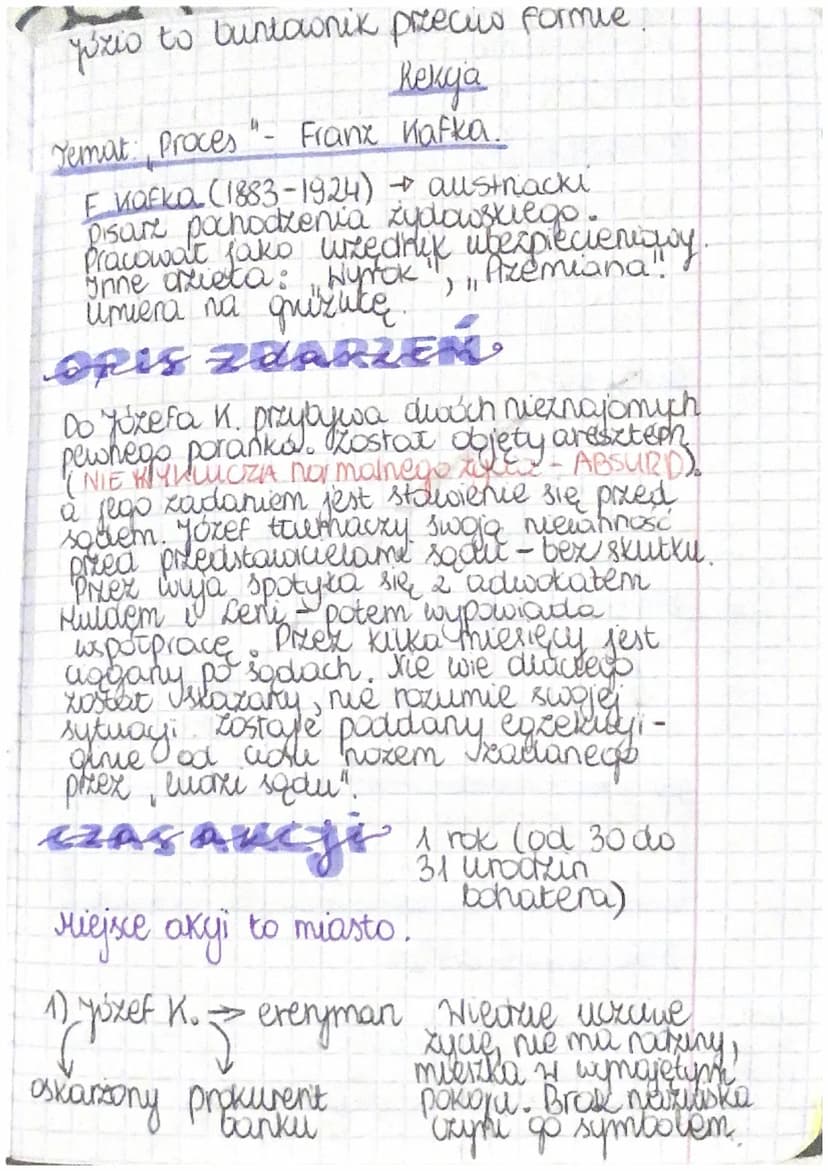 Józio to buntownik przeciw formie.
Lekcja
Temat: „Proces" - Franz Kafka.
F. Kafka (1883-1924) → austriacki
pisarz pochodzenia żydowskiego.
Pracował jako urzędnik ubezpieczeniowy.
Inne dzieła: „Wyrok", „Przemiana".
Umiera na gruźlicę.
OPIS ZDARZEŃ
Do Józefa K. przybywa dwóch nieznajomych
pewnego poranka. Został objęty aresztem
(NIE WYKLUCZA normalnego życia - ABSURD).
a jego zadaniem jest stawienie się przed
sądem. Józef tłumaczy swoją niewinność
przed przedstawicielami sądu - bez skutku.
Przez wuja spotyka się z adwokatem
Huldem i Leni - potem wypowiada
współpracę. Przez kilka miesięcy jest
ciągany po sądach. Nie wie dlaczego
został skazany, nie rozumie swojej
sytuacji. Zostaje poddany egzekucji -
ginie od ciosu nożem zadanego
przez „ludzi sądu".
czas akcji
1 rok (od 30 do
31 urodzin
bohatera)
Miejsce akcji to miasto.
1) Józef K. → everyman
oskarżony prokurent
banku
Wiedzie uczciwe
życie, nie ma rodziny,
mieszka w wynajętym
pokoju. Brak nazwiska
czyni go symbolem.